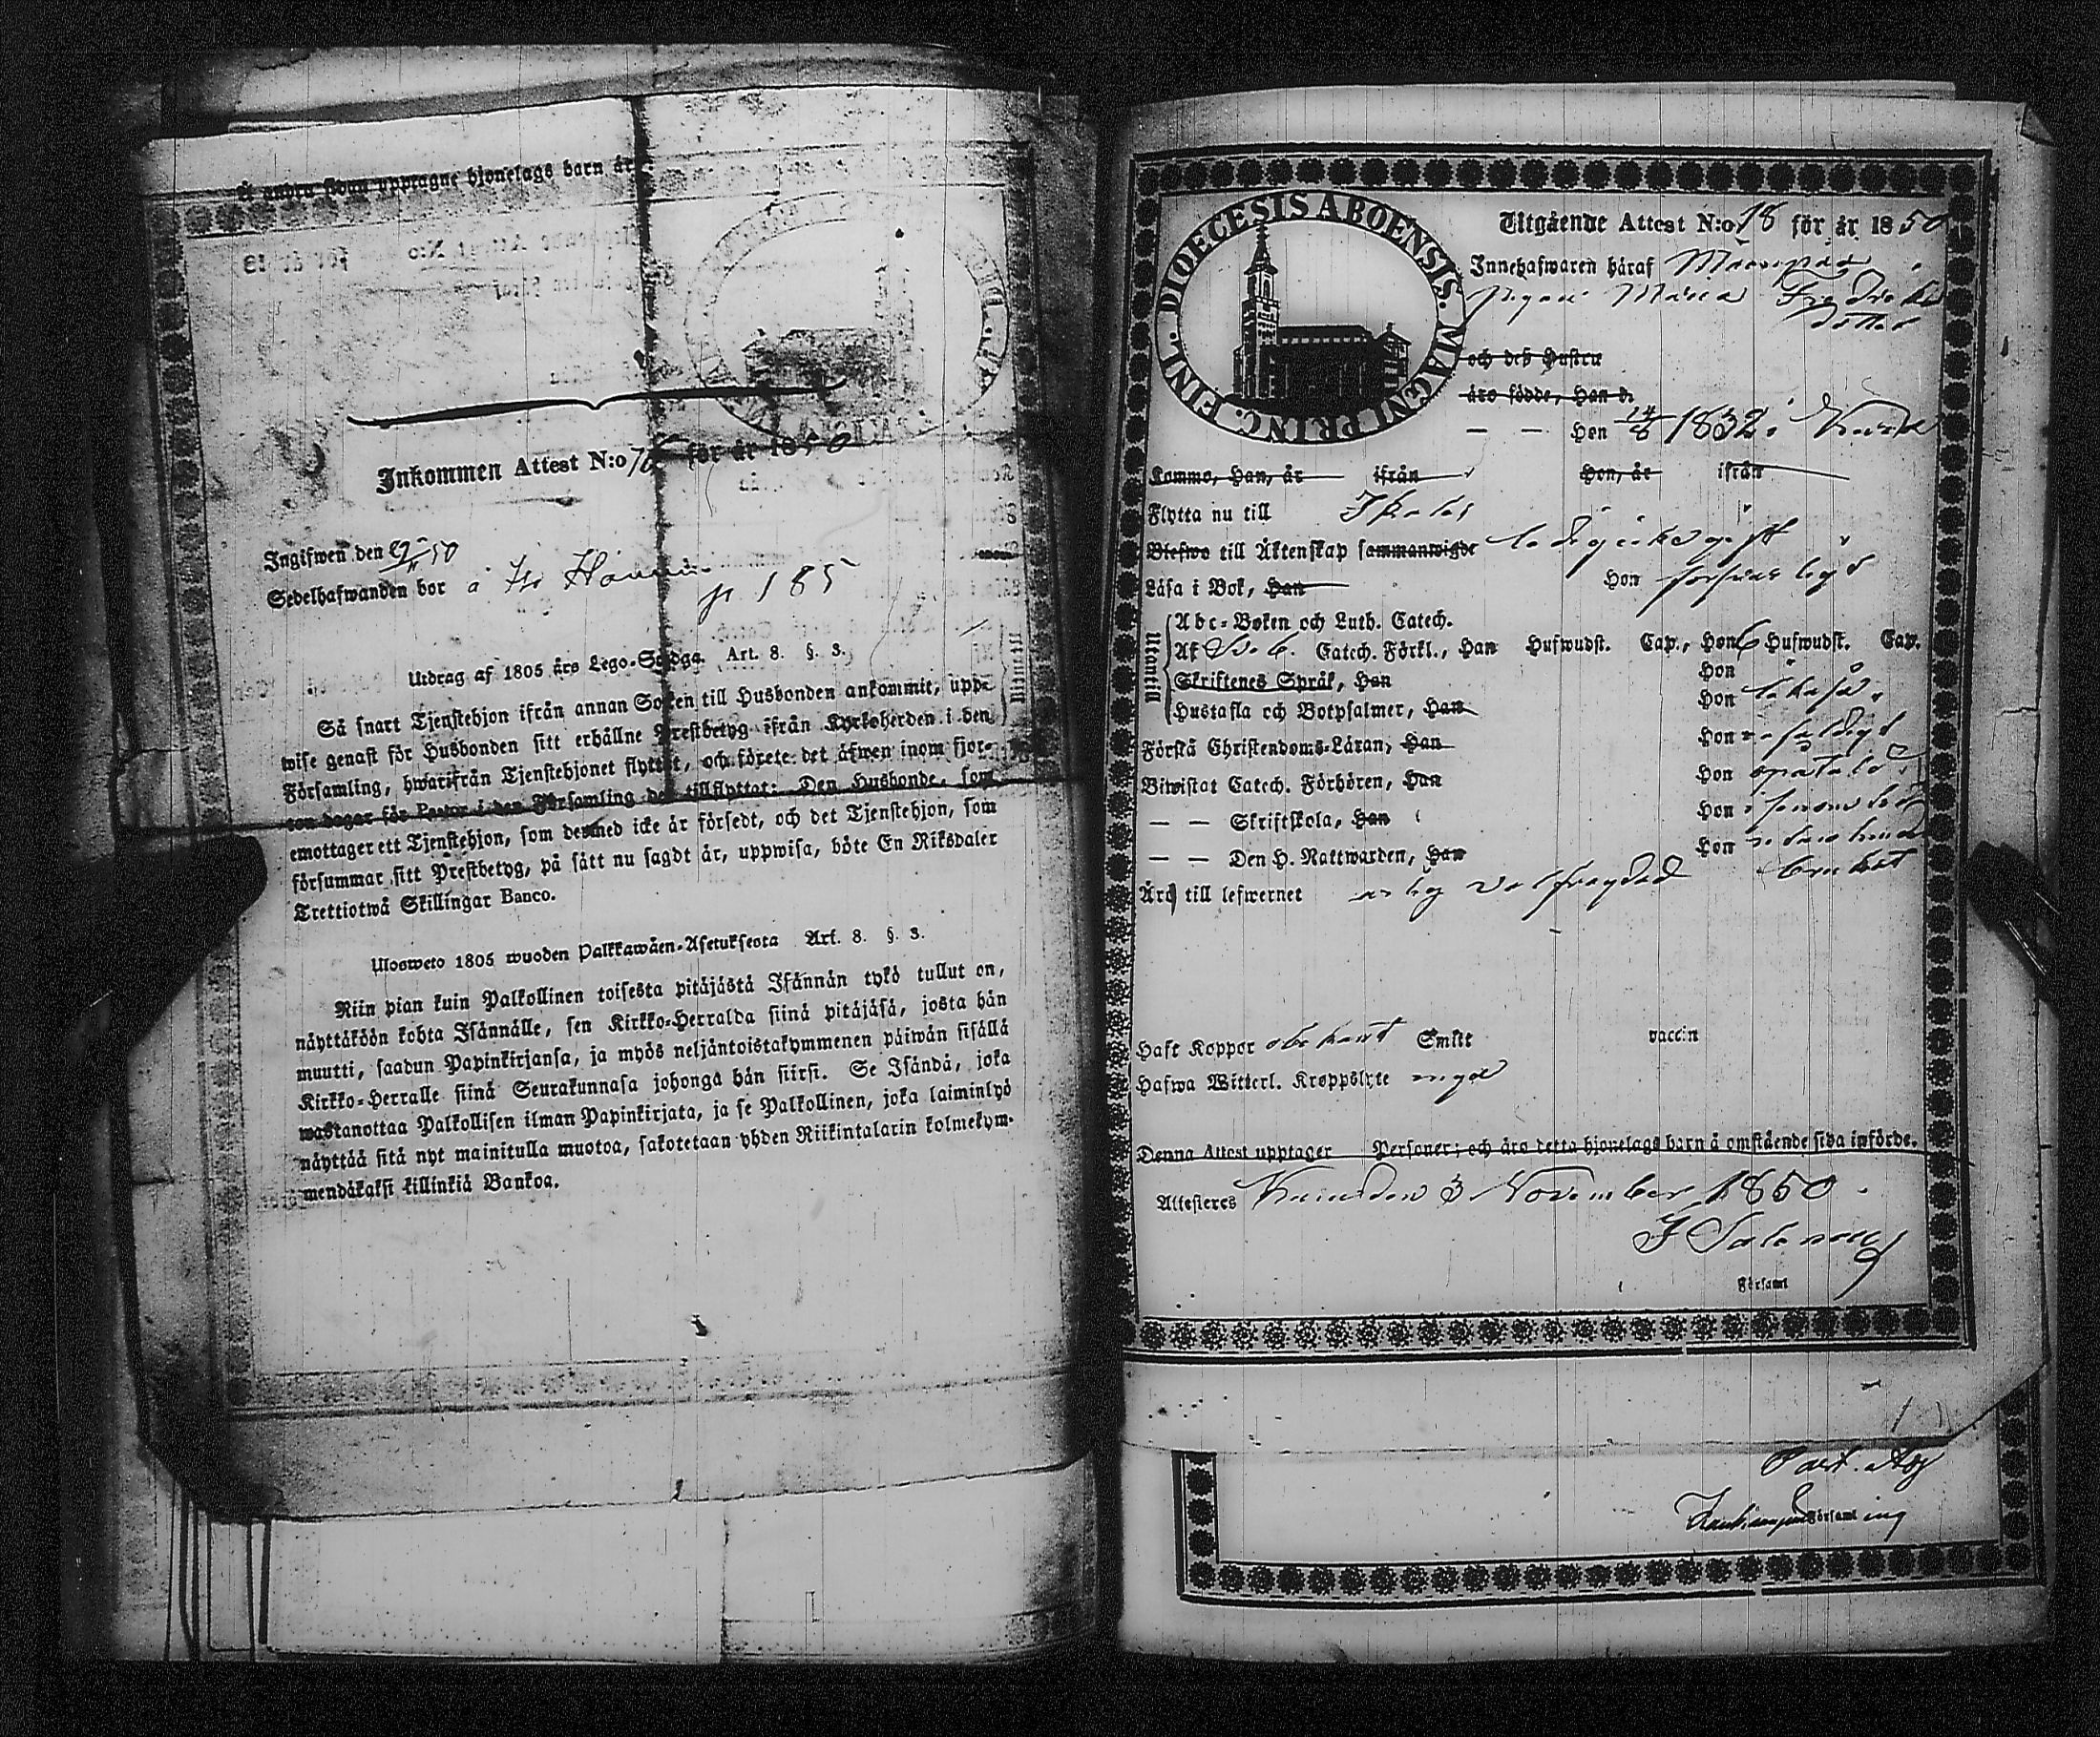 Å andra sidan upptagne hjonelags barn är
Inkommen Attest N:o 76 för år 1850
Ingifwen den 9/11 50
Sedelhafwanden bor å
p 185
Utdrag af 1805 års Lego-Stadga Art. 8. §. 3.
Så snart Tjenstehjon ifrån annan Socken till Husbonden ankommit, upp-
wise genast för Husbonden sitt erhållne Prestbetyg ifrån Kyrkoherden i den
Församling, hwarifrån Tjenstehjonet flyttat, och förete det äfwen inom fjor-
ton dagar för Pastor i den Församling det tillflyttat: Den Husbonde, som
emottager ett Tjenstehjon, som dermed icke är försedt, och det Tjenstehjon, som
försummar sitt Prestbetyg, på sätt nu sagdt är, uppwisa, böte En Riksdaler
Trettiotwå Skillingar Banco.
Ulosweto 1805 wuoden Palkkawäen-Asetuksesta Art. 8. §. 3.
Niin pian kuin Palkollinen toisesta pitäjästä Isännän tykö tullut on,
näyttäköön kohta Isännälle, sen Kirkko-Herralda siinä pitäjäsä, josta hän
muutti, saadun Papinkirjansa, ja myös neljäntoistakymmenen päiwän sisällä
Kirkko-Herralle siinä Seurakunnasa johonga hän siirsi. Se Isändä, joka
wastanottaa Palkollisen ilman Papinkirjata, ja se Palkollinen, joka laiminlyö
näyttää sitä nyt mainitulla muotoa, sakotetaan yhden Riikintalarin kolmekym-
mendäkaksi killinkiä Bankoa.
DIOECESIS ABOENSIS. MAGNI PRINC. FINL.
Utgående Attest N:o 18 för år 1850
Innehafwaren häraf
Pigan Maria Fredriks
dotter
och deß Hustru
äro födde, Han d.
— — Hon 14/8 1832 i
Kommo, Han, år ifrån Hon, år ifrån
Flytta nu till Ikalis
Blefwo till Äktenskap sammanwigde ledig
Läsa i Bok, Han Hon försvarligt
Utantill
Abc-Boken och Luth. Catech.
Af Sv. b. Catech. Förkl., Han Hufwudst. Cap., Hon 6 Hufwudst. Cap.
Skriftenes Språk, Han Hon
Hustafla och Botpsalmer, Han Hon likaså
Förstå Christendoms-Läran, Han Hon
Biwistat Catech. Förhören, Han Hon
— — Skriftskola, Han Hon
— — Den H. Nattwarden, Han Hon
Äro till lefwernet ärlig välfrägdad
Haft Koppor obekant Smitt vaccin
Hafwa Witterl. Kroppslyte inga
Denna Attest upptager Personer; och äro detta hjonelags barn å omstående sida införde.
Attesteres den 3 November 1850.
Församl
Past. Adj
Församling